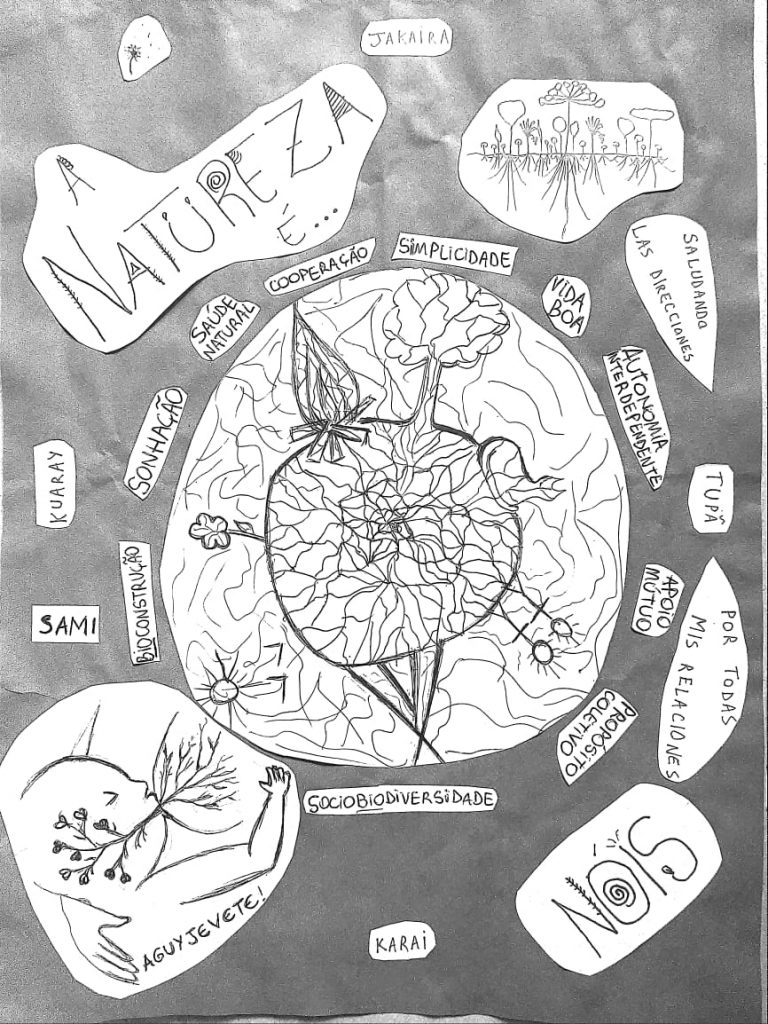 JAKAIRA
A
NATUREZA
É...
COOPERAÇÃO
SIMPLICIDADE
SAÚDE
NATURAL
VIDA
BOA
SALUDANDO
LAS DIRECCIONES
AUTONOMIA
INTERDEPENDENTE
SONHAÇÃO
KUARAY
TUPÃ
BIOCONSTRUÇÃO
SAMI
APOIO
MÚTUO
POR TODAS
MIS RELACIONES
PROPÓSITO
COLETIVO
SOCIOBIODIVERSIDADE
NÓIS
AGUYJEVETE!
KARAI